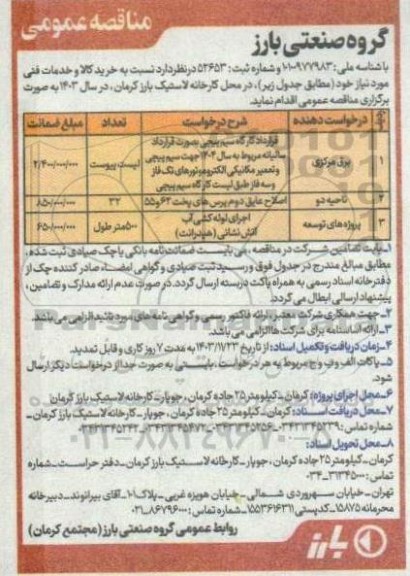 مناقصه عمومی
گروه صنعتی بارز
با شناسه ملی: ۱۰۱۰۰۹۷۷۹۸۳ و شماره ثبت: ۵۲۶۵۳ در نظر دارد نسبت به خرید کالا و خدمات فنی
مورد نیاز خود (مطابق جدول زیر)، در محل کارخانه لاستیک بارز کرمان، در سال ۱۴۰۳ به صورت
برگزاری مناقصه عمومی اقدام نماید.
درخواست دهنده شرح درخواست تعداد مبلغ ضمانت
۱ برق مرکزی قرارداد کارگاه سیم پیچی بصورت قرارداد
سالیانه مربوط به سال ۱۴۰۴ جهت سیم پیچی
و تعمیر مکانیکی الکتروموتورهای تک فاز
و سه فاز طبق لیست کارگاه سیم پیچی لیست پیوست ۲/۴۰۰/۰۰۰/۰۰۰
۲ ناحیه دو اصلاح عایق دوم پرس های پخت ۶۲ و ۵۵ ۳۲ ۸۵۰/۰۰۰/۰۰۰
۳ پروژه های توسعه اجرای لوله کشی آب
آتش نشانی (هیدرانت) ۵۰۰ متر طول ۶۵۰/۰۰۰/۰۰۰
۱ـ بابت تضامین شرکت در مناقصه، می بایست ضمانت نامه بانکی یا چک صیادی ثبت شده،
مطابق مبالغ مندرج در جدول فوق و رسید ثبت صیادی و گواهی امضاء صادر کننده چک از
دفترخانه اسناد رسمی به همراه پاکت دربسته ارسال گردد. در صورت عدم ارائه مدارک و تضامین،
پیشنهاد ارسالی ابطال می گردد.
۲ـ جهت همکاری شرکت معتبر، ارائه فاکتور رسمی و گواهی نامه های مورد تائید الزامی می باشد.
۳ـ ارائه اساسنامه برای شرکت ها الزامی می باشد.
۴ـ زمان دریافت و تکمیل اسناد: از تاریخ ۱۴۰۳/۱۱/۲۳ به مدت ۷ روز کاری و قابل تمدید.
۵ـ پاکات الف و ب و ج مربوط به هر درخواست، بایستی به صورت جدا از درخواست دیگر ارسال
شود.
۶ـ محل اجرای پروژه: کرمان ـ کیلومتر ۲۵ جاده کرمان، جوپار ـ کارخانه لاستیک بارز کرمان
۷ـ محل دریافت اسناد: کرمان ـ کیلومتر ۲۵ جاده کرمان، جوپار ـ کارخانه لاستیک بارز کرمان ـ
شماره تماس:
۸ـ محل تحویل اسناد:
کرمان ـ کیلومتر ۲۵ جاده کرمان، جوپار ـ کارخانه لاستیک بارز کرمان ـ دفتر حراست ـ شماره
تماس: ۰۳۴ـ۳۱۳۴۵۰۰۰
تهران ـ خیابان سهروردی شمالی ـ خیابان هویزه غربی ـ پلاک ۱۰۱ـ آقای بیرانوند ـ دبیرخانه
محرمانه ۱۵۸۷۵ ـ کدپستی ۱۵۵۳۶۱۶۳۱۱ ـ شماره تماس: ۸۶۷۹۶۰۰۰ـ۰۲۱
روابط عمومی گروه صنعتی بارز (مجتمع کرمان)
بارز